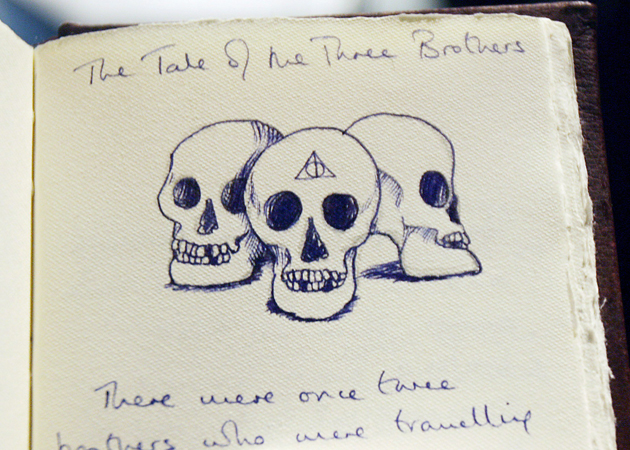 The Tale of the Three Brothers
There were once three
brothers who were travelling